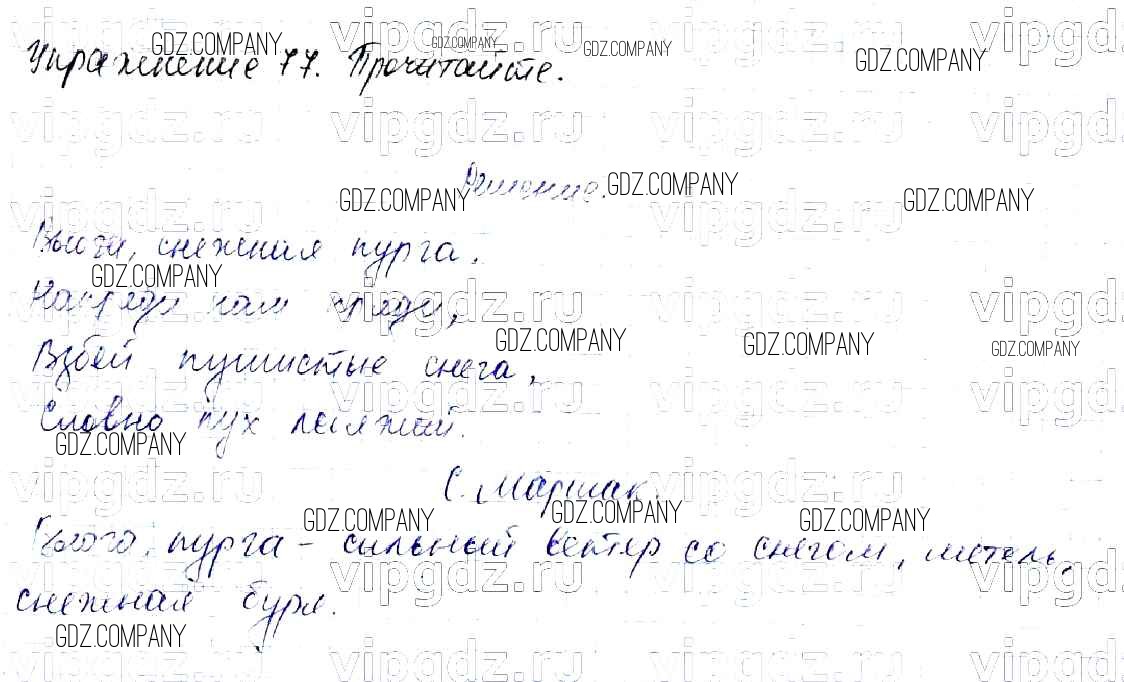 Упражнение 77. Прочитайте.
Решение.
Вьюга, снежная пурга,
Напряди нам пряжи,
Взбей пушистые снега,
Словно пух лебяжий.
С. Маршак.
Вьюга, пурга – сильный ветер со снегом, метель,
снежная буря.
GDZ.COMPANY
vipgdz.ru